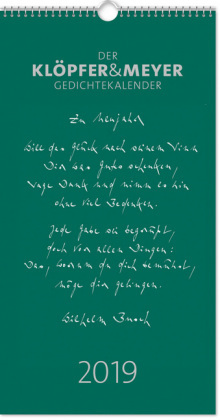 DER
KLÖPFER&MEYER
GEDICHTEKALENDER
Zu Neujahr
Will das Glück nach seinem Sinn
Dir was Gutes schenken,
Sage Dank und nimm es hin
ohne viel Bedenken.
Jede Gabe sei begrüßt,
doch vor allen Dingen:
Das, worum du dich bemühst,
möge dir gelingen.
Wilhelm Busch
2019